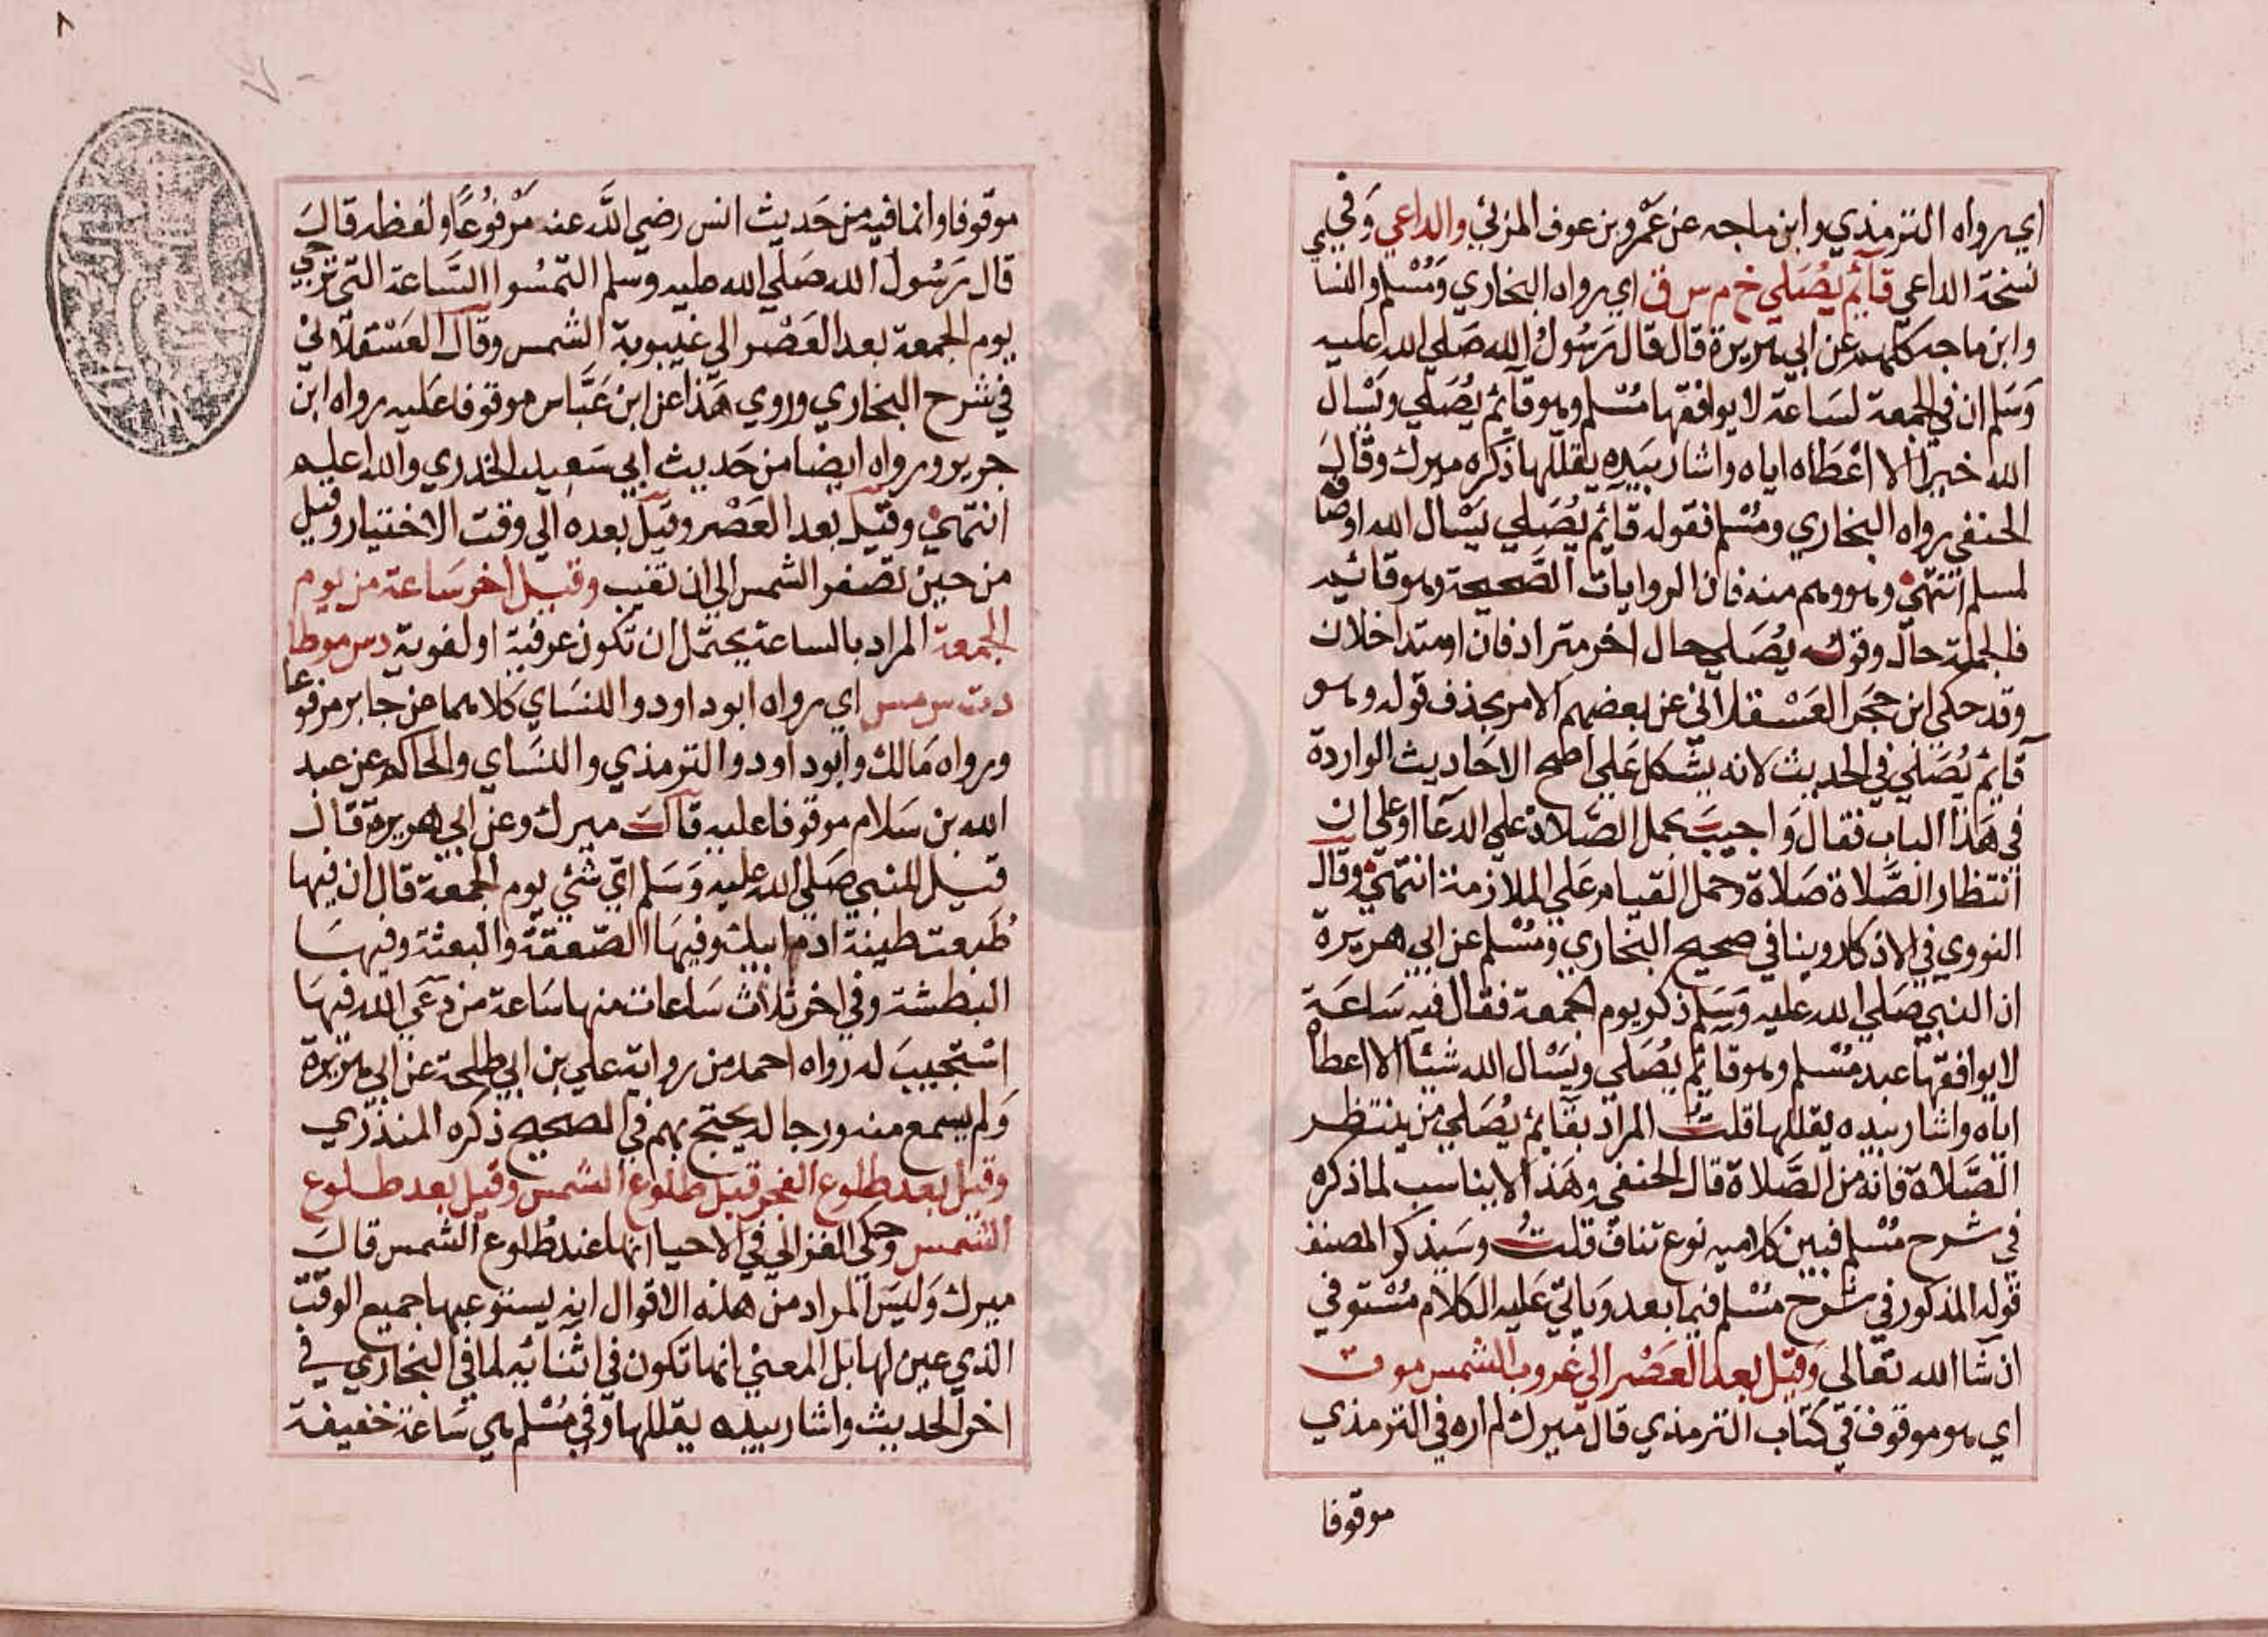 اي رواه الترمذي وابن ماجه عن عمرو بن عوف المزني والداعي وفي
نسخة الداعي قائم يصلي خ م س ق اي رواه البخاري ومسلم والنسا
وابن ماجه كلهم عن ابي هريرة قال قال رسول الله صلي الله عليه
وسلم ان في الجمعة لساعة لا يوافقها مسلم وهو قائم يصلي ويسال
الله خيرا الا اعطاه اياه واشار بيده يقللها ذكره ميرك وقال
الحنفي رواه البخاري ومسلم فقوله قائم يصلي يسال الله اوصا فه
لمسلم انتهي وهو وهم منه فان الروايات الصحيحة وهو قائم
فالجملة حال وقوله يصلي حال اخر مترادفان او متداخلان
وقد حكي ابن حجر العسقلاني عن بعضهم الامر بحذف قوله وهو
قائم يصلي في الحديث لانه يشكل علي اصح الاحاديث الواردة
في هذا الباب فقال واجيب بحمل الصلاة علي الدعا او علي ان
انتظار الصلاة صلاة وحمل القيام علي الملازمة انتهي وقال
النووي في الاذكار وينا في صحيح البخاري ومسلم عن ابي هريرة
ان النبي صلي الله عليه وسلم ذكر يوم الجمعة فقال فيه ساعة
لا يوافقها عبد مسلم وهو قائم يصلي ويسال الله شيئا الا اعطاه
اياه واشار بيده يقللها قلت المراد بقائم يصلي من ينتظر
الصلاة فانه من الصلاة قال الحنفي وهذا لا يناسب لما ذكره
في شرح مسلم فبين كلاميه نوع تناف قلت وسيذكر المصنف
قوله المذكور في شرح مسلم فيما بعد وياتي عليه الكلام مستوفي
ان شا الله تعالي وقيل بعد العصر الي غروب الشمس مو ت
اي هو موقوف في كتاب الترمذي قال ميرك لم اره في الترمذي
موقوفا
موقوفا وانما فيه من حديث انس رضي الله عنه مرفوعا ولفظه قال
قال رسول الله صلي الله عليه وسلم التمسوا الساعة التي ترجي
يوم الجمعة بعد العصر الي غيبوبة الشمس وقال العسقلاني
في شرح البخاري وروي هذا عن ابن عباس موقوفا عليه رواه ابن
جرير ورواه ايضا من حديث ابي سعيد الخدري والله اعلم
انتهي وقيل بعد العصر وقيل بعده الي وقت الاختيار وقيل
من حين تصفر الشمس الي ان تغيب وقيل اخر ساعة من يوم
الجمعة المراد بالساعة يحتمل ان تكون عرفية او لغوية د س موطا
د ت س مس اي رواه ابو داود والنساي كلاهما عن جابر مرفوعا
ورواه مالك وابو داود والترمذي والنساي والحاكم عن عبد
الله بن سلام موقوفا عليه قال ميرك وعن ابي هريرة قال
قيل للنبي صلي الله عليه وسلم اي شئي يوم الجمعة قال ان فيها
طبعت طينة ادم ابيك وفيها الصعقة والبعثة وفيها
البطشة وفي اخر ثلاث ساعات منها ساعة من دعي الله فيها
استجيب له رواه احمد من رواية علي بن ابي طلحة عن ابي هريرة
ولم يسمع منه ورجاله يحتج بهم في الصحيح ذكره المنذري
وقيل بعد طلوع الفجر قبل طلوع الشمس وقيل بعد طلوع
الشمس وحكي الغزالي في الاحيا انها عند طلوع الشمس قال
ميرك وليس المراد من هذه الاقوال انه يستوعبها جميع الوقت
الذي عين لها بل المعني انها تكون في اثنائه لما في البخاري في
اخر الحديث واشار بيده يقللها وفي مسلم هي ساعة خفيفة
٨